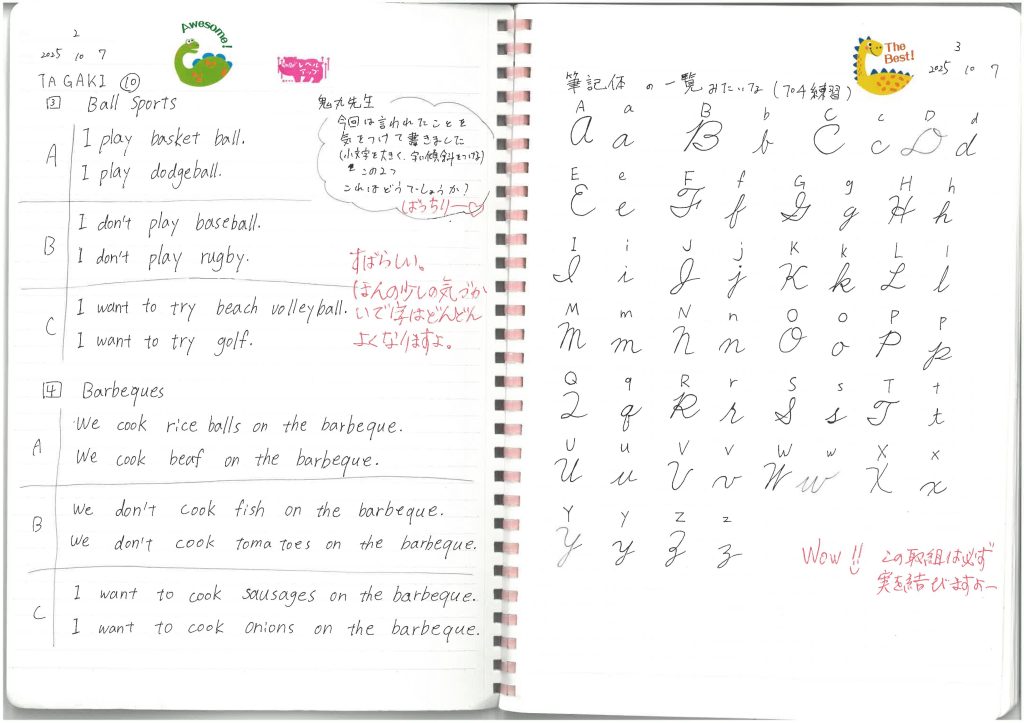 2
2025 10 7
Awesome!
レベルアップ
TAGAKI ⑩
3 Ball Sports
A
I play basket ball.
I play dodgeball.
B
I don't play baseball.
I don't play rugby.
C
I want to try beach volleyball.
I want to try golf.
鬼丸先生
今回は言われたことを
気をつけて書きました
(小文字を大きく、字の傾斜をつける)
この2つ
これはどうでしょうか?
ばっちりー♡
すばらしい。
ほんの少しの気づか
いで字はどんどん
よくなりますよ。
4 Barbeques
A
We cook rice balls on the barbeque.
We cook beaf on the barbeque.
B
We don't cook fish on the barbeque.
We don't cook tomatoes on the barbeque.
C
I want to cook sausages on the barbeque.
I want to cook onions on the barbeque.
The Best!
3
2025 10 7
筆記体 の一覧みたいな(704練習)
A a B b C c D d
A a B b C c D d
E e F f G g H h
E e F f G g H h
I i J j K k L l
I i J j K k L l
M m N n O o P p
M m N n O o P p
Q q R r S s T t
Q q R r S s T t
U u V v W w X x
U u V v W w X x
Y y Z z
Y y Z z
Wow!! この取組は必ず
実を結びますよー